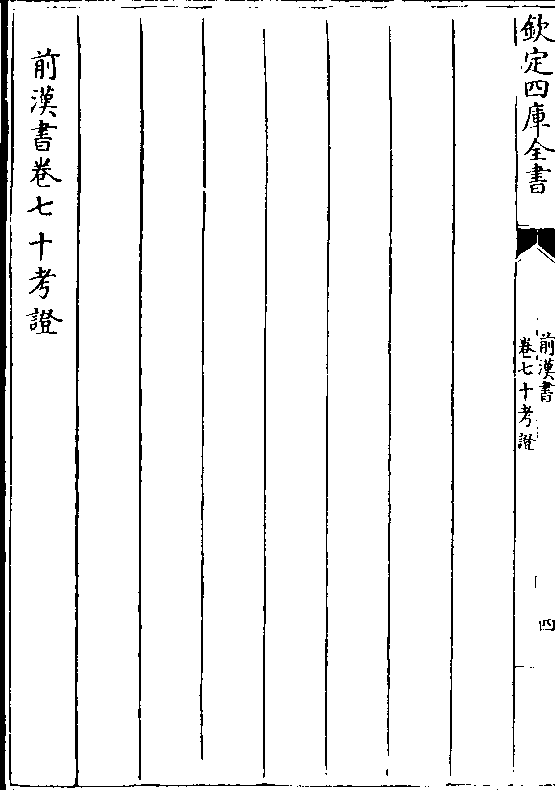 欽定四庫全書
前漢書
卷七十考證
四
前漢書卷七十考證